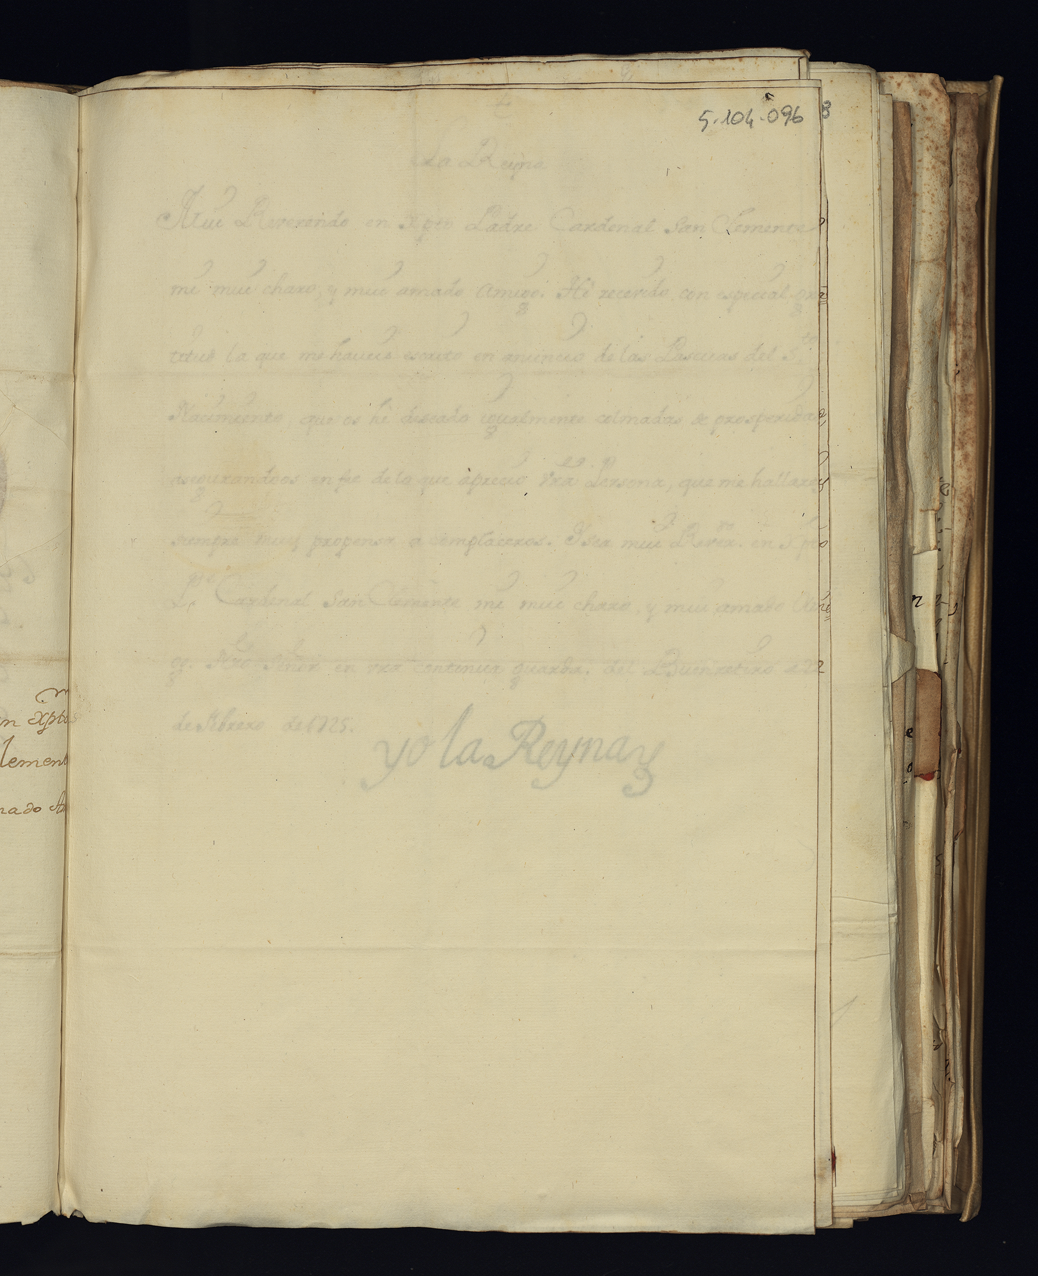 5.104.096
La Reyna
Mui Reverendo en Xpto Padre Cardenal San Clemente
mi mui charo, y mui amado Amigo. Hé recevido con especial gra
titud la que me haveis escrito en anuncio de las Pascuas del S.to
Nacimiento, que os hé deseado igualmente colmadas de prosperida
asegurandoos en fee de lo que aprecio vra Persona, que me hallareis
siempre muy propensa a complaceros. Y sea mui Rever. en Xpto
P.e Cardenal San Clemente mi mui charo, y mui amado
Nro Señor en vra continua guarda. del Buen retiro a 22
de febrero de 1725.
yo la Reyna
n Xpto
lement
nado A